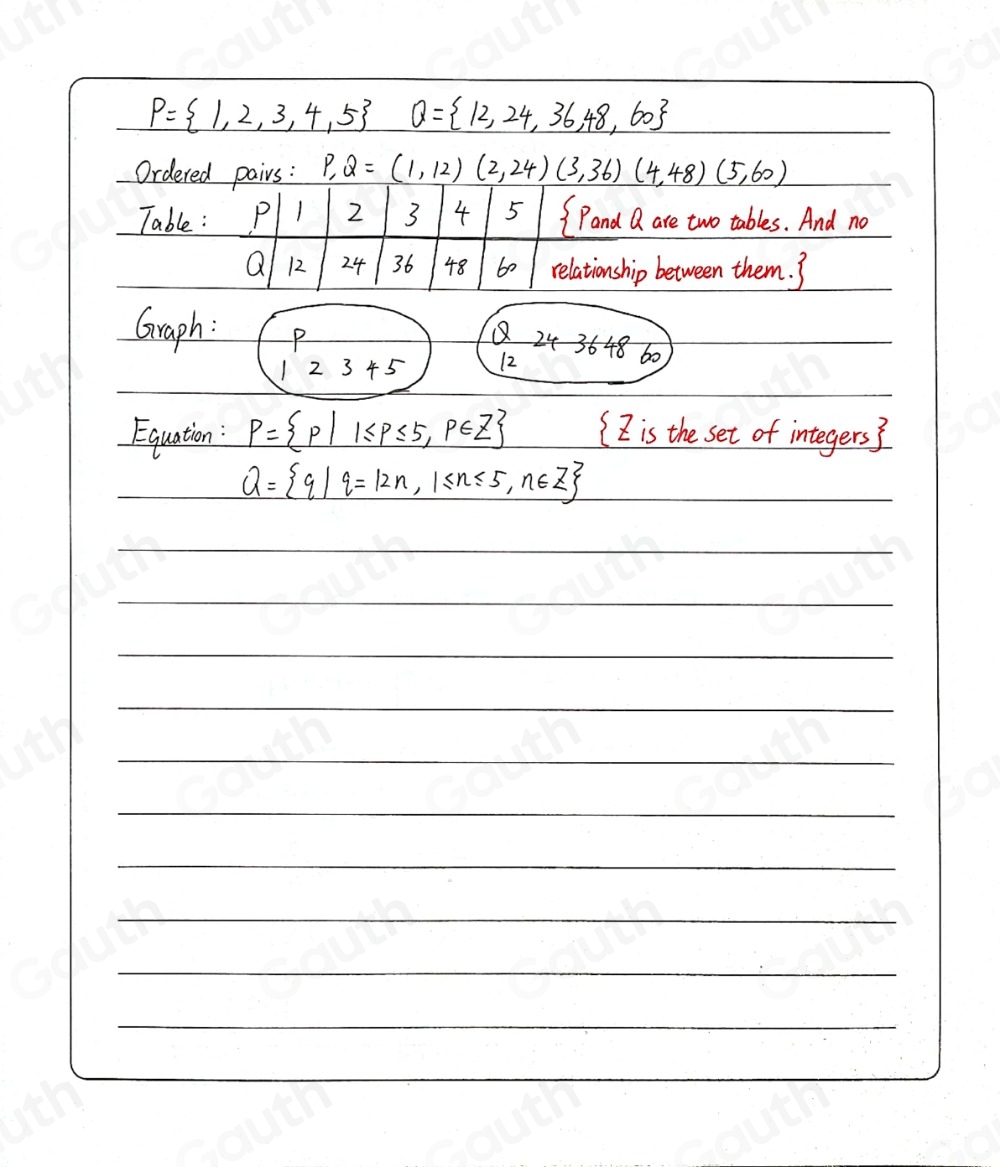 P={1,2,3,4,5} Q={12,24,36,48,60}
Ordered pairs: P,Q = (1,12) (2,24) (3,36) (4,48) (5,60)
Table: P 1 2 3 4 5 {P and Q are two tables. And no
Q 12 24 36 48 60 relationship between them.}
Graph: P Q 24 36 48 60
1 2 3 4 5 12
Equation: P={p| 1≤P≤5, P∈Z} {Z is the set of integers}
Q={q| q=12n, 1≤n≤5, n∈Z}
Gauth